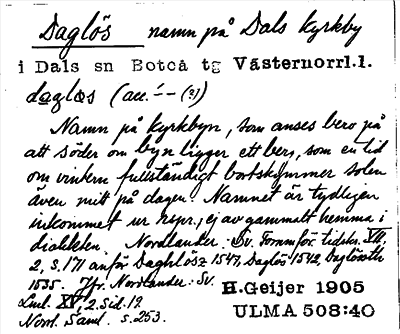 Daglös namn på Dals kyrkby
i Dals sn Boteå tg Västernorrl.l.
daglœs (acc. ´-- (2))
Namn på kyrkbyn, som anses bero på
att söder om byn ligger ett berg, som en tid
om vintern fullständigt bortskymmer solen
även mitt på dagen. Namnet är tydligen
inkommet ur repr., ej av gammalt hemma i
dialekten. Nordlander: Sv. Fornmför. tidskr. VII,
2, s. 171 anför Daghlösz 1547, Daglös 1542,
1535. Jfr. Nordlander: Sv.
Lml. XV, 2. Sid. 12. H.Geijer 1905
Norrl. Saml. s. 253. ULMA 508:40